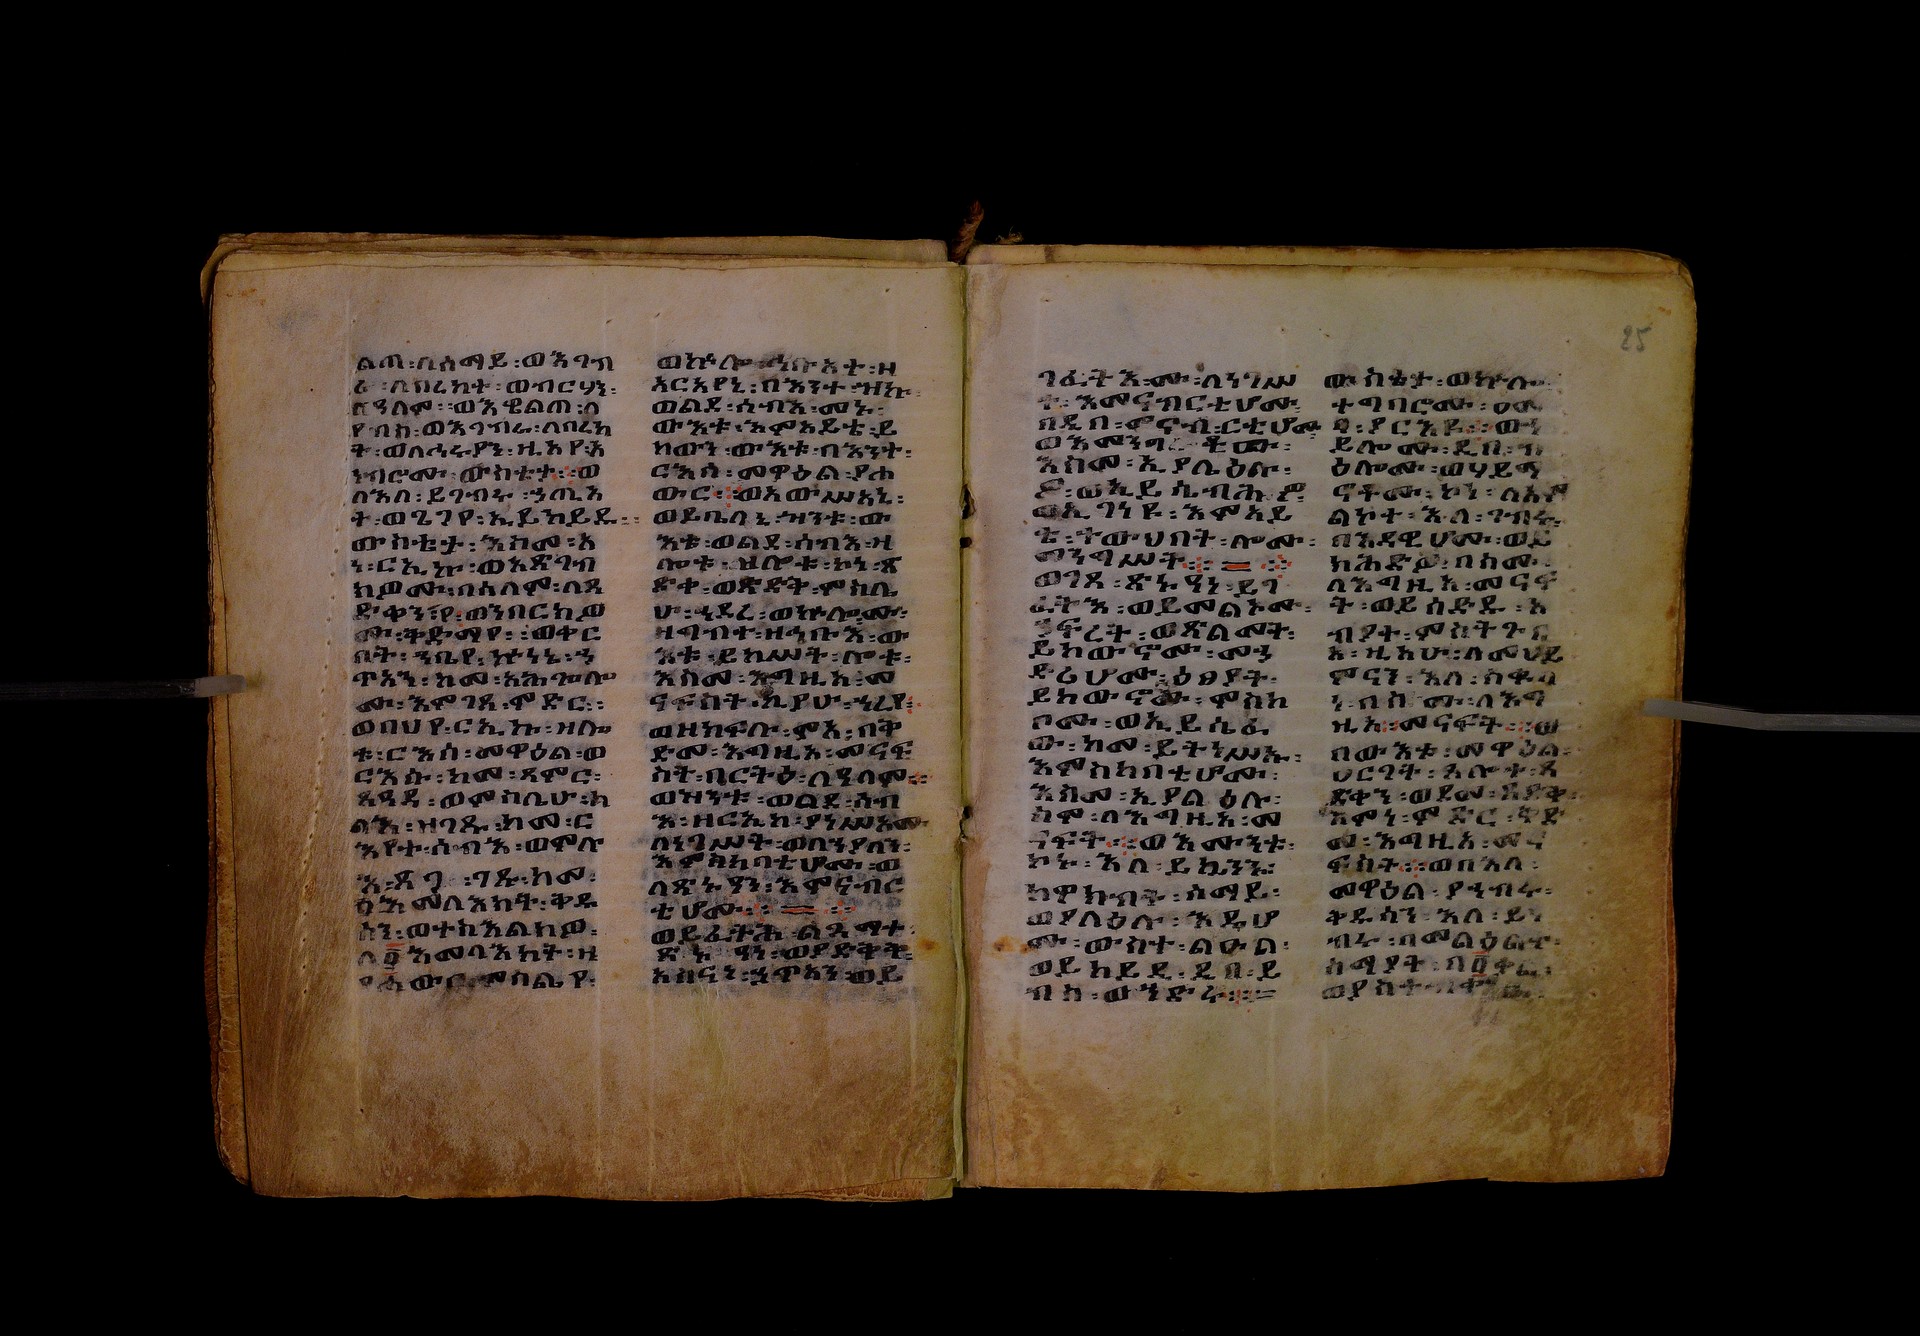 ልጠ፡ለሰማይ፡ወእገብ
ራ፡ለበረከት፡ወብርሃን፡
ለዓለም፡ወእዌልጠ፡ለ
የብስ፡ወእገብራ፡ለበረከ
ት፡ወለኅሩያን፡ዚአየ፡አ
ነብሮሙ፡ውስቴታ፡፡ወ
ለእለ፡ይገብሩ፡ኃጢአ
ት፡ወጌጋየ፡ኢይከይዱ፡፡
ውስቴታ፡እስመ፡አ
ነ፡ርኢኩ፡ወአጽገብ
ክዎሙ፡በሰላም፡ለጻ
ድቃን፡የ፡ወንበርክዎ
ሙ፡ቅድሜየ፡ወቅር
በት፡ኀቤየ፡ኵነኔ፡ኃ
ጥአን፡ከመ፡አሕጕሎ
ሙ፡እምገጸ፡ምድር፡፡
ወበህየ፡ርኢኩ፡ዘሎ
ቱ፡ርእሰ፡መዋዕል፡ወ
ርእሱ፡ከመ፡ጸምር፡
ጸዓዳ፡ወምስሌሁ፡ካ
ልእ፡ዘገጹ፡ከመ፡ር
እየተ፡ሰብእ፡ወምሉ
እ፡ጸጋ፡ገጹ፡ከመ፡
፩እመላእክት፡ቅዱ
ሳን፡ወተስእልክዎ፡
ለ፩እመላእክት፡ዘ
የሐውር፡ምስሌየ፡
ወኵሎ፡ኅቡአት፡ዘ
አርአየኒ፡በእንተ፡ዝኩ፡
ወልደ፡ሰብእ፡መኑ፡
ውእቱ፡እምአይቴ፡ይ
ከውን፡ውእቱ፡በእንተ፡
ርእሰ፡መዋዕል፡የሐ
ውር፡፡ወአውሥአኒ፡
ወይቤለኒ፡ዝንቱ፡ው
እቱ፡ወልደ፡ሰብእ፡ዘ
ሎቱ፡ዝሎቱ፡ኮነ፡ጽ
ድቀ፡ወጽድቅ፡ምስሌ
ሁ፡ኀደረ፡ወኵሎ፡መ፡
ዛግብተ፡ዘኅቡእ፡ው
እቱ፡ይከሥት፡ሎቱ፡
እስመ፡እግዚአ፡መ
ናፍስት፡ኪያሁ፡ኀረየ፡
ወዘክፍሉ፡ሞአ፡በቅ
ድመ፡እግዚአ፡መናፍ
ስት፡በርትዕ፡ለዓለም፡፡
ወዝንቱ፡ወልደ፡ሰብ
እ፡ዘርኢከ፡ያነሥእሙ
ለነገሥት፡ወለኀያላን፡
እምስካባቲሆሙ፡ወ
ለጽኑዓን፡እምናብር
ቲሆሙ፡፡
ወይፈትሕ፡ልጓማተ
ጽኑዓን፡ወያደቅቅ፡
አስናነ፡ኃጥአን፡ወይ
ገፈትእሙ፡ለነገሥ
ት፡እመናብርቲሆሙ፡
በዲበ፡መናብርቲሆሙ
ወእመንግሥቶሙ፡
እስመ፡ኢያሌዕሉ፡
ዎ፡ወኢይሴብሕዎ
ወኢገነዩ፡እምአይ
ቴ፡ተውህበት፡ሎሙ፡
መንግሥት፡፡
ወገጸ፡ጽኑዓን፡ይገ
ፈትእ፡ወይመልኦሙ፡
ኀፍረት፡ወጽልመት፡
ይከውኖሙ፡መኀ
ድሪሆሙ፡ዕፀያት፡
ይከውኖሙ፡ምስካ
ቦሙ፡ወኢይሴፈ
ው፡ከመ፡ይትነሥኡ፡
እምስካባቲሆሙ፡
እስመ፡ኢያልዕሉ፡
ስሞ፡ለእግዚአ፡መ
ናፍት፡፡ወእሙንቱ፡
ኮኑ፡እለ፡ይኴንኑ፡
ከዋክብተ፡ሰማይ፡
ወያሌዕሉ፡እዴሆ
ሙ፡ውስተ፡ልዑል፡
ወይከይዱ፡ዲበ፡ይ
ብስ፡ወኀድሩ፡፡
ውስቴታ፡ወኵሉ፡
ተግባሮሙ፡ዐመ
ፃ፡ያርእዩ፡፡ወኀ
ይሎሙ፡ዲበ፡ብ
ዕሎሙ፡ወሃይማ
ኖቶሙ፡ኮነ፡ለአም
ልክተ፡እለ፡ገብሩ፡
በእደዊሆሙ፡ወይ
ክሕድዎ፡በስመ፡
ለእግዚአ፡መናፍ
ት፡ወይሰድዱ፡አ
ብያተ፡ምስትጉቡ
እ፡ዚአሁ፡ለመሀይ
ምናን፡እለ፡ስቁላ
ን፡በስሙ፡ለእግ
ዚአ፡መናፍት፡፡ወ
በውእቱ፡መዋዕል፡
ዐርገት፡ጸሎተ፡ጻ
ድቃን፡ወደመ፡ጻድቅ፡
እምነ፡ምድር፡ቅድ
መ፡እግዚአ፡መና
ፍስት፡፡ወበእለ፡
መዋዕል፡የኀብሩ፡
ቅዱሳን፡እለ፡ይነ
ብሩ፡በመልዕልተ፡
ሰማያት፡በ፩ቃል፡